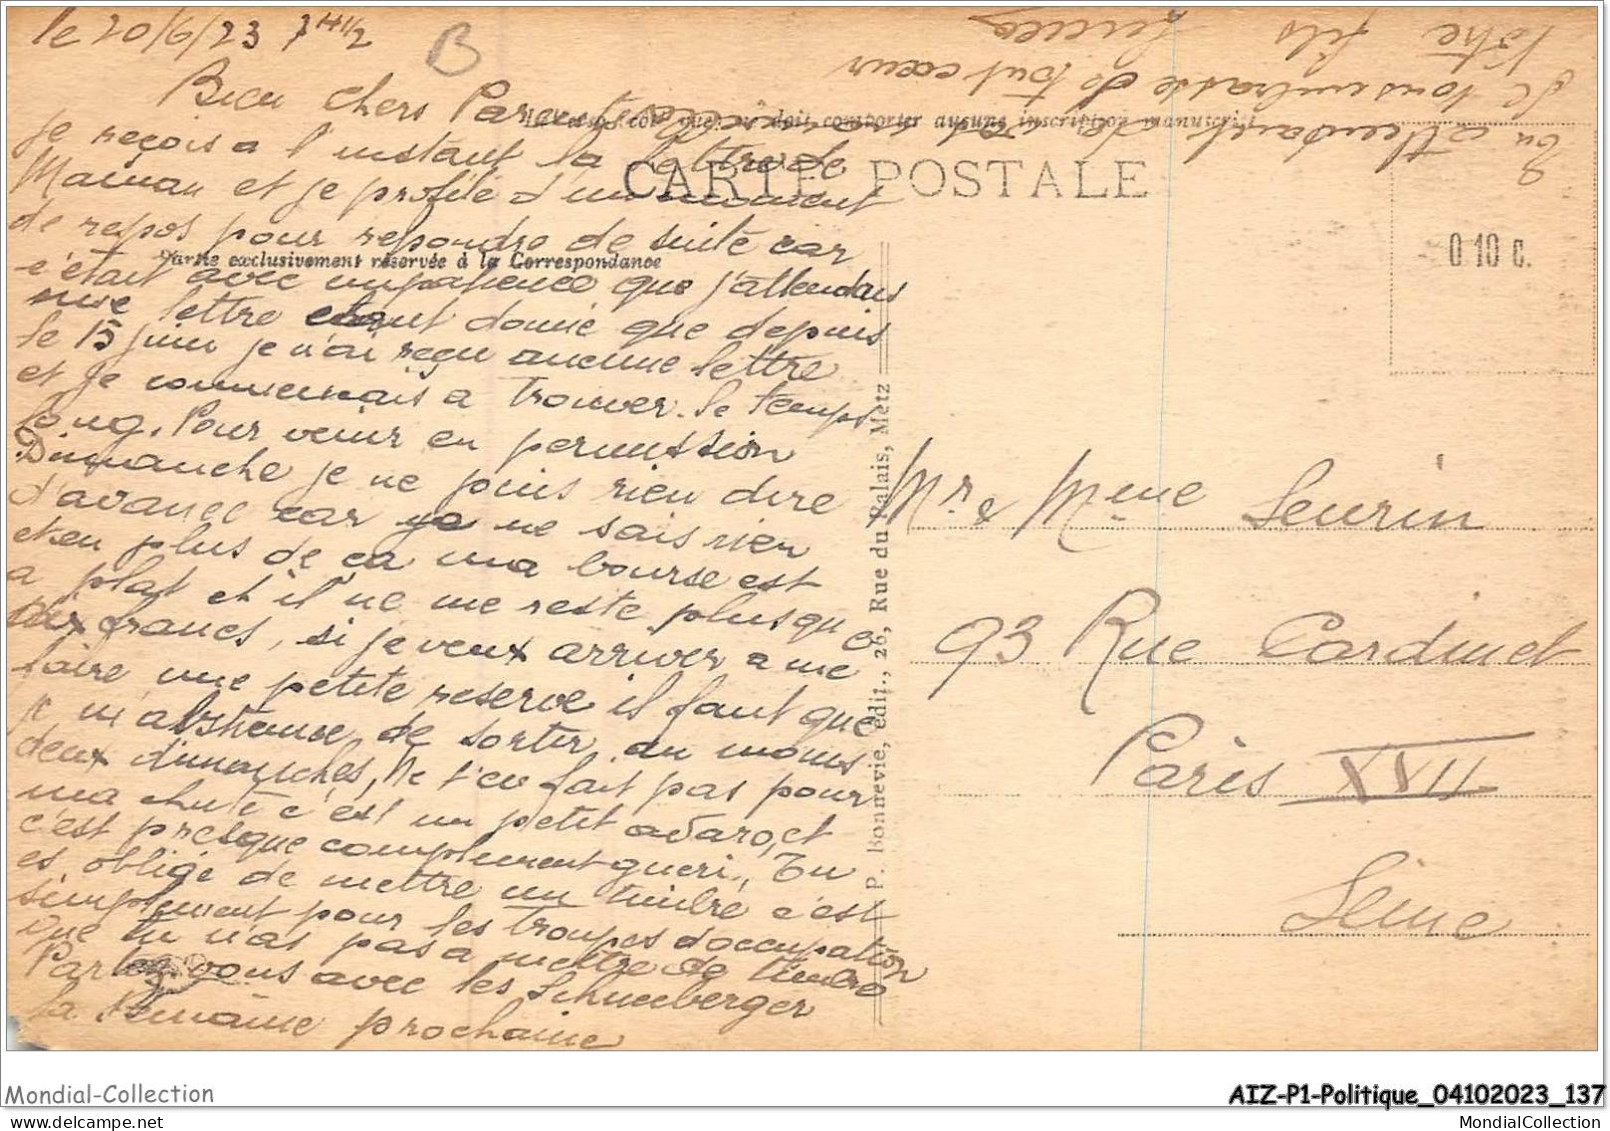 le 20/6/23 7H1/2
B
Bien chers Parents
je reçois a l'instant la lettre de
Maman et je profite d'un moment
de repos pour repondre de suite car
c'était avec impatience que j'attendais
une lettre etant donné que depuis
le 15 juin je n'ai reçu aucune lettre
et je commençais a trouver le temps
long. Pour venir en permission
Dimanche je ne puis rien dire
d'avance car je ne sais rien
et en plus de ca ma bourse est
a plat et il ne me reste plus que
dix francs, si je veux arriver a me
faire une petite reserve il faut que
je m'abstienne de sortir au moins
deux dimanches, Ne t'en fait pas pour
ma chute c'est un petit
c'est presque complement gueri, Tu
es obligé de mettre un timbre c'est
simplement pour les troupes d'occupation
que tu n'as pas a mettre de timbre
Partez vous avec les Schneeberger
la semaine prochaine
En attendant de
Je vous embrasse de tout cœur
Votre fils Lucien
côté que doit comporter aucune inscription manuscrite
CARTE POSTALE
Partie exclusivement réservée à la Correspondance
0 10 c.
P. Bonnevie, édit., 26, Rue du Palais, Metz
Mr & Mme Seurin
93 Rue Cardinet
Paris XVII
Seine
Mondial-Collection
AIZ-P1-Politique_04102023_137
www.mondialcollection.com
MondialCollection.com